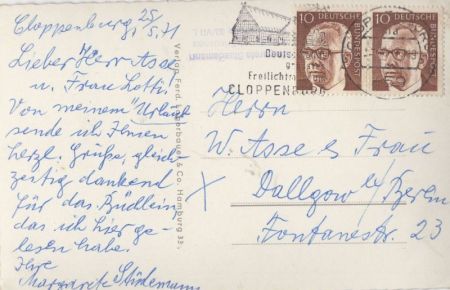 Cloppenburg 25/5.71
Lieber Herr Asse
u. Frau Lotti.
Von meinem "Urlaub"
sende ich Ihnen
herzl. Grüße, gleich-
zeitig dankend
für das Büchlein
das ich hier ge-
lesen habe.
Ihre
Margarete Stüdemann
Verlag Ferd. Lagerbauer & Co. Hamburg 33
CLOPPENBURG
10 DEUTSCHE BUNDESPOST
10 DEUTSCHE BUNDESPOST
Herrn
W. Asse & Frau
Dallgow b/Berlin
Fontanestr. 23